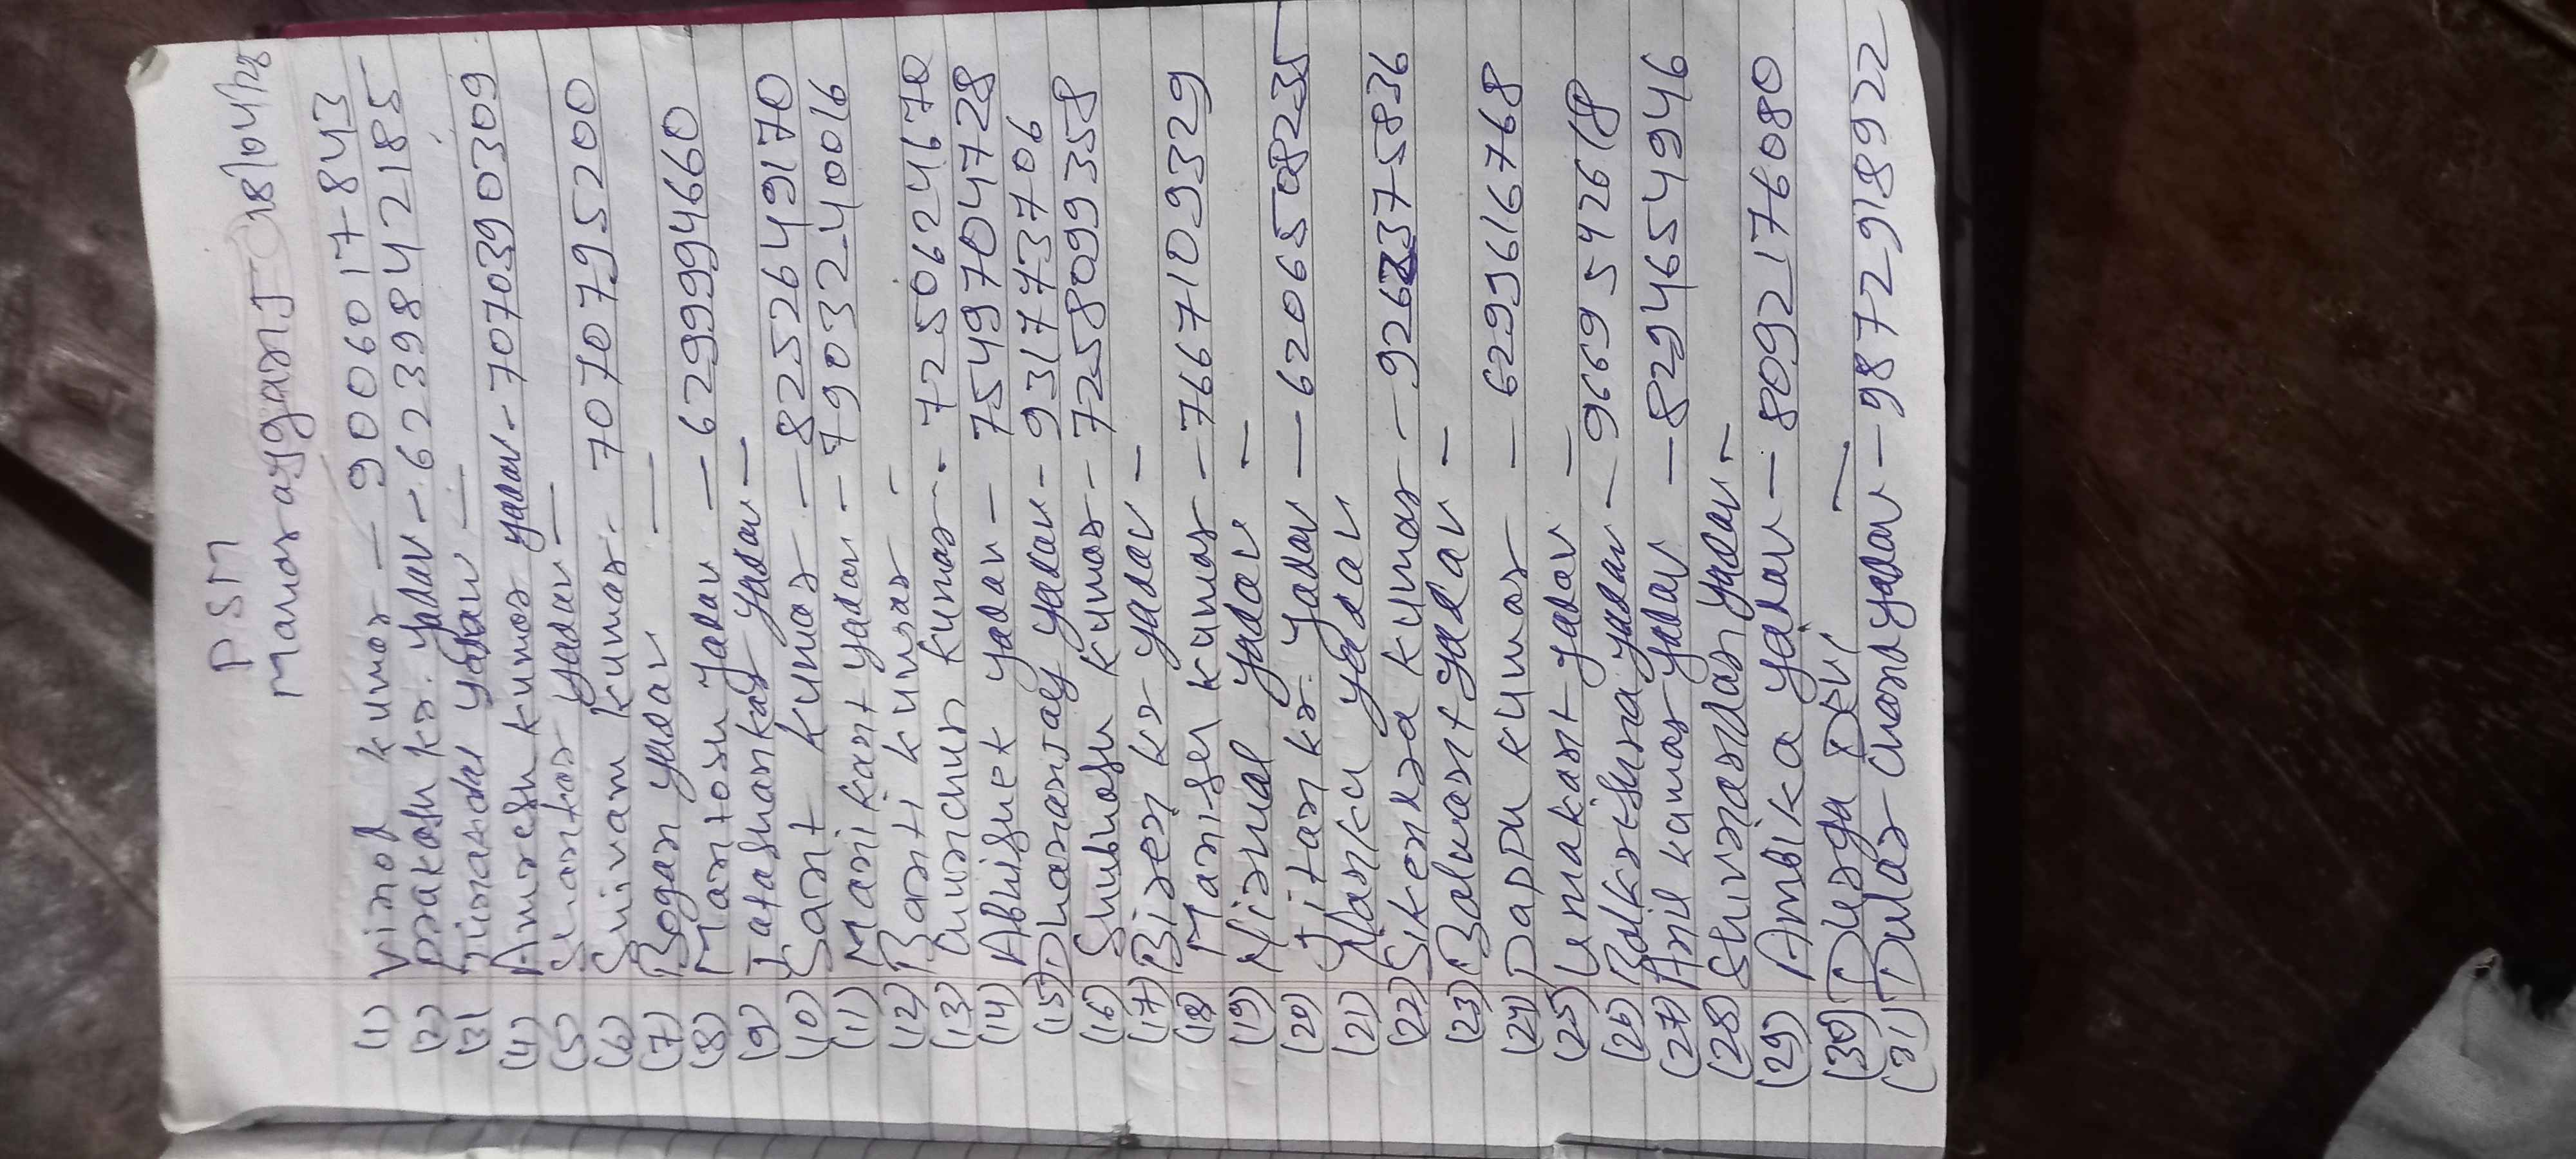 PSM
Manasaganj 18/04/28
(1) Vinod kumar — 9006017843
(2) prakash kr. yadav — 6239842185
(3) yadav —
(4) Amresh kumar yadav - 7070390309
(5) Shankar yadav —
(6) Shivam kumar - 7070795200
(7) Bogan yadav —
(8) Mantosh yadav — 6299994660
(9) Jatashankar yadav —
(10) Sant kumar — 8252649170
(11) Manikant yadav — 7903240016
(12) Banti kumar -
(13) kumar - 7250624670
(14) Abhishek yadav — 7549704728
(15) Dhananjay yadav - 9317737706
(16) Shubhash kumar - 7258099358
(17) Biren kr yadav —
(18) Manish kumar — 7667109329
(19) Nirmal yadav —
(20) Jitan kr. yadav — 6206508235
(21) Manku yadav
(22) Sikendra kumar — 9262375836
(23) Balwant yadav —
(24) Pappu kumar — 6299616768
(25) Umakant yadav —
(26) Balkrishna yadav — 9669542618
(27) Anil kumar yadav — 8294654946
(28) Shivnandan yadav —
(29) Ambika yadav — 8092176080
(30) Durga Devi —
(31) Dular yadav — 9872918922